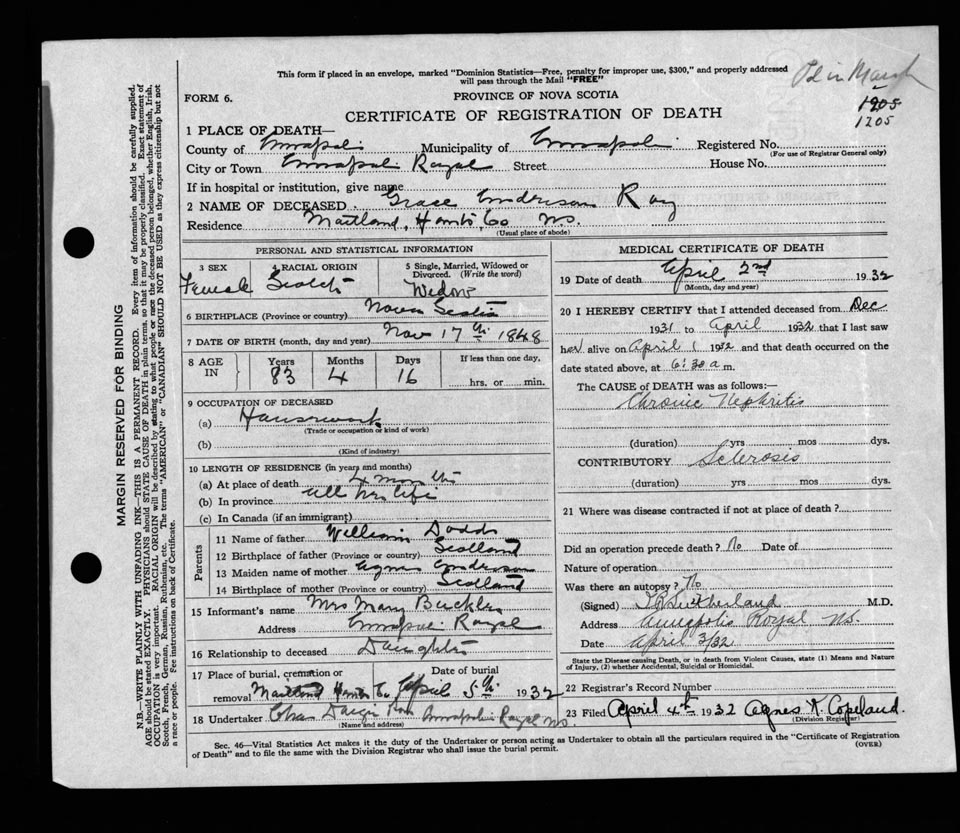 This form if placed in an envelope, marked "Dominion Statistics—Free, penalty for improper use, $300," and properly addressed
will pass through the Mail "FREE"
in March
FORM 6.
PROVINCE OF NOVA SCOTIA
1205
CERTIFICATE OF REGISTRATION OF DEATH
1205
1 PLACE OF DEATH—
County of Annapolis Municipality of Annapolis Registered No.
(For use of Registrar General only)
City or Town Annapolis Royal Street House No.
If in hospital or institution, give name
2 NAME OF DECEASED Grace Anderson Roy
Residence Maitland, Hants Co NS.
(Usual place of abode)
PERSONAL AND STATISTICAL INFORMATION
3 SEX 4 RACIAL ORIGIN 5 Single, Married, Widowed or Divorced. (Write the word)
Female Scotch Widow
6 BIRTHPLACE (Province or country) Nova Scotia
7 DATE OF BIRTH (month, day and year) Nov 17th 1848
8 AGE IN Years Months Days If less than one day,
83 4 16 hrs. or min.
9 OCCUPATION OF DECEASED
(a) Housework
(Trade or occupation or kind of work)
(b)
(Kind of industry)
10 LENGTH OF RESIDENCE (in years and months)
(a) At place of death 4 months
(b) In province all her life
(c) In Canada (if an immigrant)
Parents
11 Name of father William Dodds
12 Birthplace of father (Province or country) Scotland
13 Maiden name of mother Agnes Anderson
14 Birthplace of mother (Province or country) Scotland
15 Informant's name Mrs Mary Buckler
Address Annapolis Royal
16 Relationship to deceased Daughter
17 Place of burial, cremation or removal Date of burial
Maitland Hants Co April 5th 1932
18 Undertaker Chas Annapolis Royal NS
(Name and address)
MEDICAL CERTIFICATE OF DEATH
19 Date of death April 2nd 1932
(Month, day and year)
20 I HEREBY CERTIFY that I attended deceased from Dec
1931 to April 1932 that I last saw
her alive on April 1 1932 and that death occurred on the
date stated above, at 6:30 a m.
The CAUSE OF DEATH was as follows:—
Chronic Nephritis
(duration) yrs mos dys.
CONTRIBUTORY Sclerosis
(duration) yrs mos dys.
21 Where was disease contracted if not at place of death?
Did an operation precede death? No Date of
Nature of operation
Was there an autopsy? No
(Signed) Sutherland M.D.
Address Annapolis Royal NS.
Date April 3/32
State the Disease causing Death, or in death from Violent Causes, state (1) Means and Nature
of Injury, (2) whether Accidental, Suicidal or Homicidal.
22 Registrar's Record Number
23 Filed April 4th 1932 Agnes K. Copeland.
(Division Registrar)
Sec. 46—Vital Statistics Act makes it the duty of the Undertaker or person acting as Undertaker to obtain all the particulars required in the "Certificate of Registration
of Death" and to file the same with the Division Registrar who shall issue the burial permit.
(OVER)
MARGIN RESERVED FOR BINDING
N.B.—WRITE PLAINLY WITH UNFADING INK—THIS IS A PERMANENT RECORD. Every item of information should be carefully supplied.
AGE should be stated EXACTLY. PHYSICIANS should STATE CAUSE OF DEATH in plain terms, so that it may be properly classified. Exact statement of
OCCUPATION is very important. RACIAL ORIGIN will be described by stating to what people or race the deceased person belonged, whether English, Irish,
Scotch, French, German, Russian, Ruthenian, etc. The terms "AMERICAN" or "CANADIAN" SHOULD NOT BE USED as they express citizenship but not
a race or people. Fee instructions on back of Certificate.